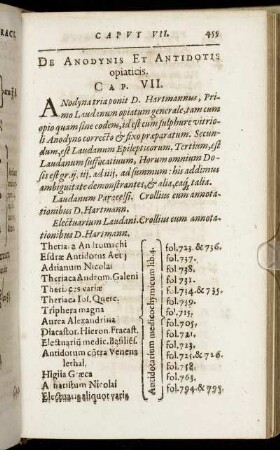 CAPVT VII. 455
DE ANODYNIS ET ANTIDOTIS
opiaticis.
CAP. VII.
ANodyna tria ponit D. Hartmannus, Pri-
mo Laudanum opiatum generale, tam cum
opio quam sine eodem, id est cum sulphure vitrio-
li Anodyno correcto & fixo præparatum. Secun-
dum, est Laudanum Epilepticorum. Tertium, est
Laudanum suffocatiuum, Horum omnium Do-
sis est gr. ij. iij. ad iiij. ad summum: his addimus
ambiguitate demonstrantes, & alia, eaq́; talia.
Laudanum Paracelsi. Crollius cum annota-
tionibus D. Hartmann.
Electuarium Laudani. Crollius cum annota-
tionibus D. Hartmann.
Antidotarium medicochymicum lib. 4.
Theriaca Andromachi fol. 723. & 736.
Esdræ Antidotus Aetij fol. 737.
Adrianum Nicolai fol. 738.
Theriaca Androm. Galeni fol. 732.
Theriacæ variæ fol. 734. & 735.
Theriaca Ios. Querc. fol. 739.
Triphera magna fol. 725.
Aurea Alexandrina fol. 705.
Diascor. Hieron. Fracast. fol. 721.
Electuariũ medic. Basiliẽs. fol. 723.
Antidotum cõtra Venena fol. 725. & 726.
lethal. fol. 758.
Higiia Græca fol. 763.
Athanasia Nicolai fol. 794. & 795.
Electuaria aliquot varia